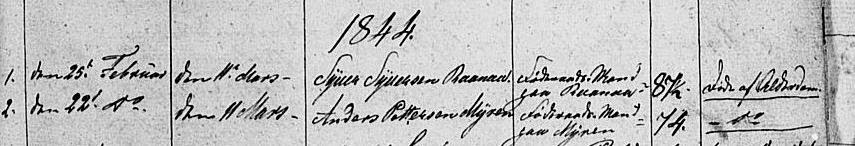 1844.
1. den 25de Februar den 11te Mars - Syver Syversen Raanaas. Føderaads-Mand
paa Raanaas = 87¼. Døde af Alderdom.
2. den 22de do. den 11 Mars - Anders Pettersen Myren Føderaads-Mand
paa Myren = 74. - do